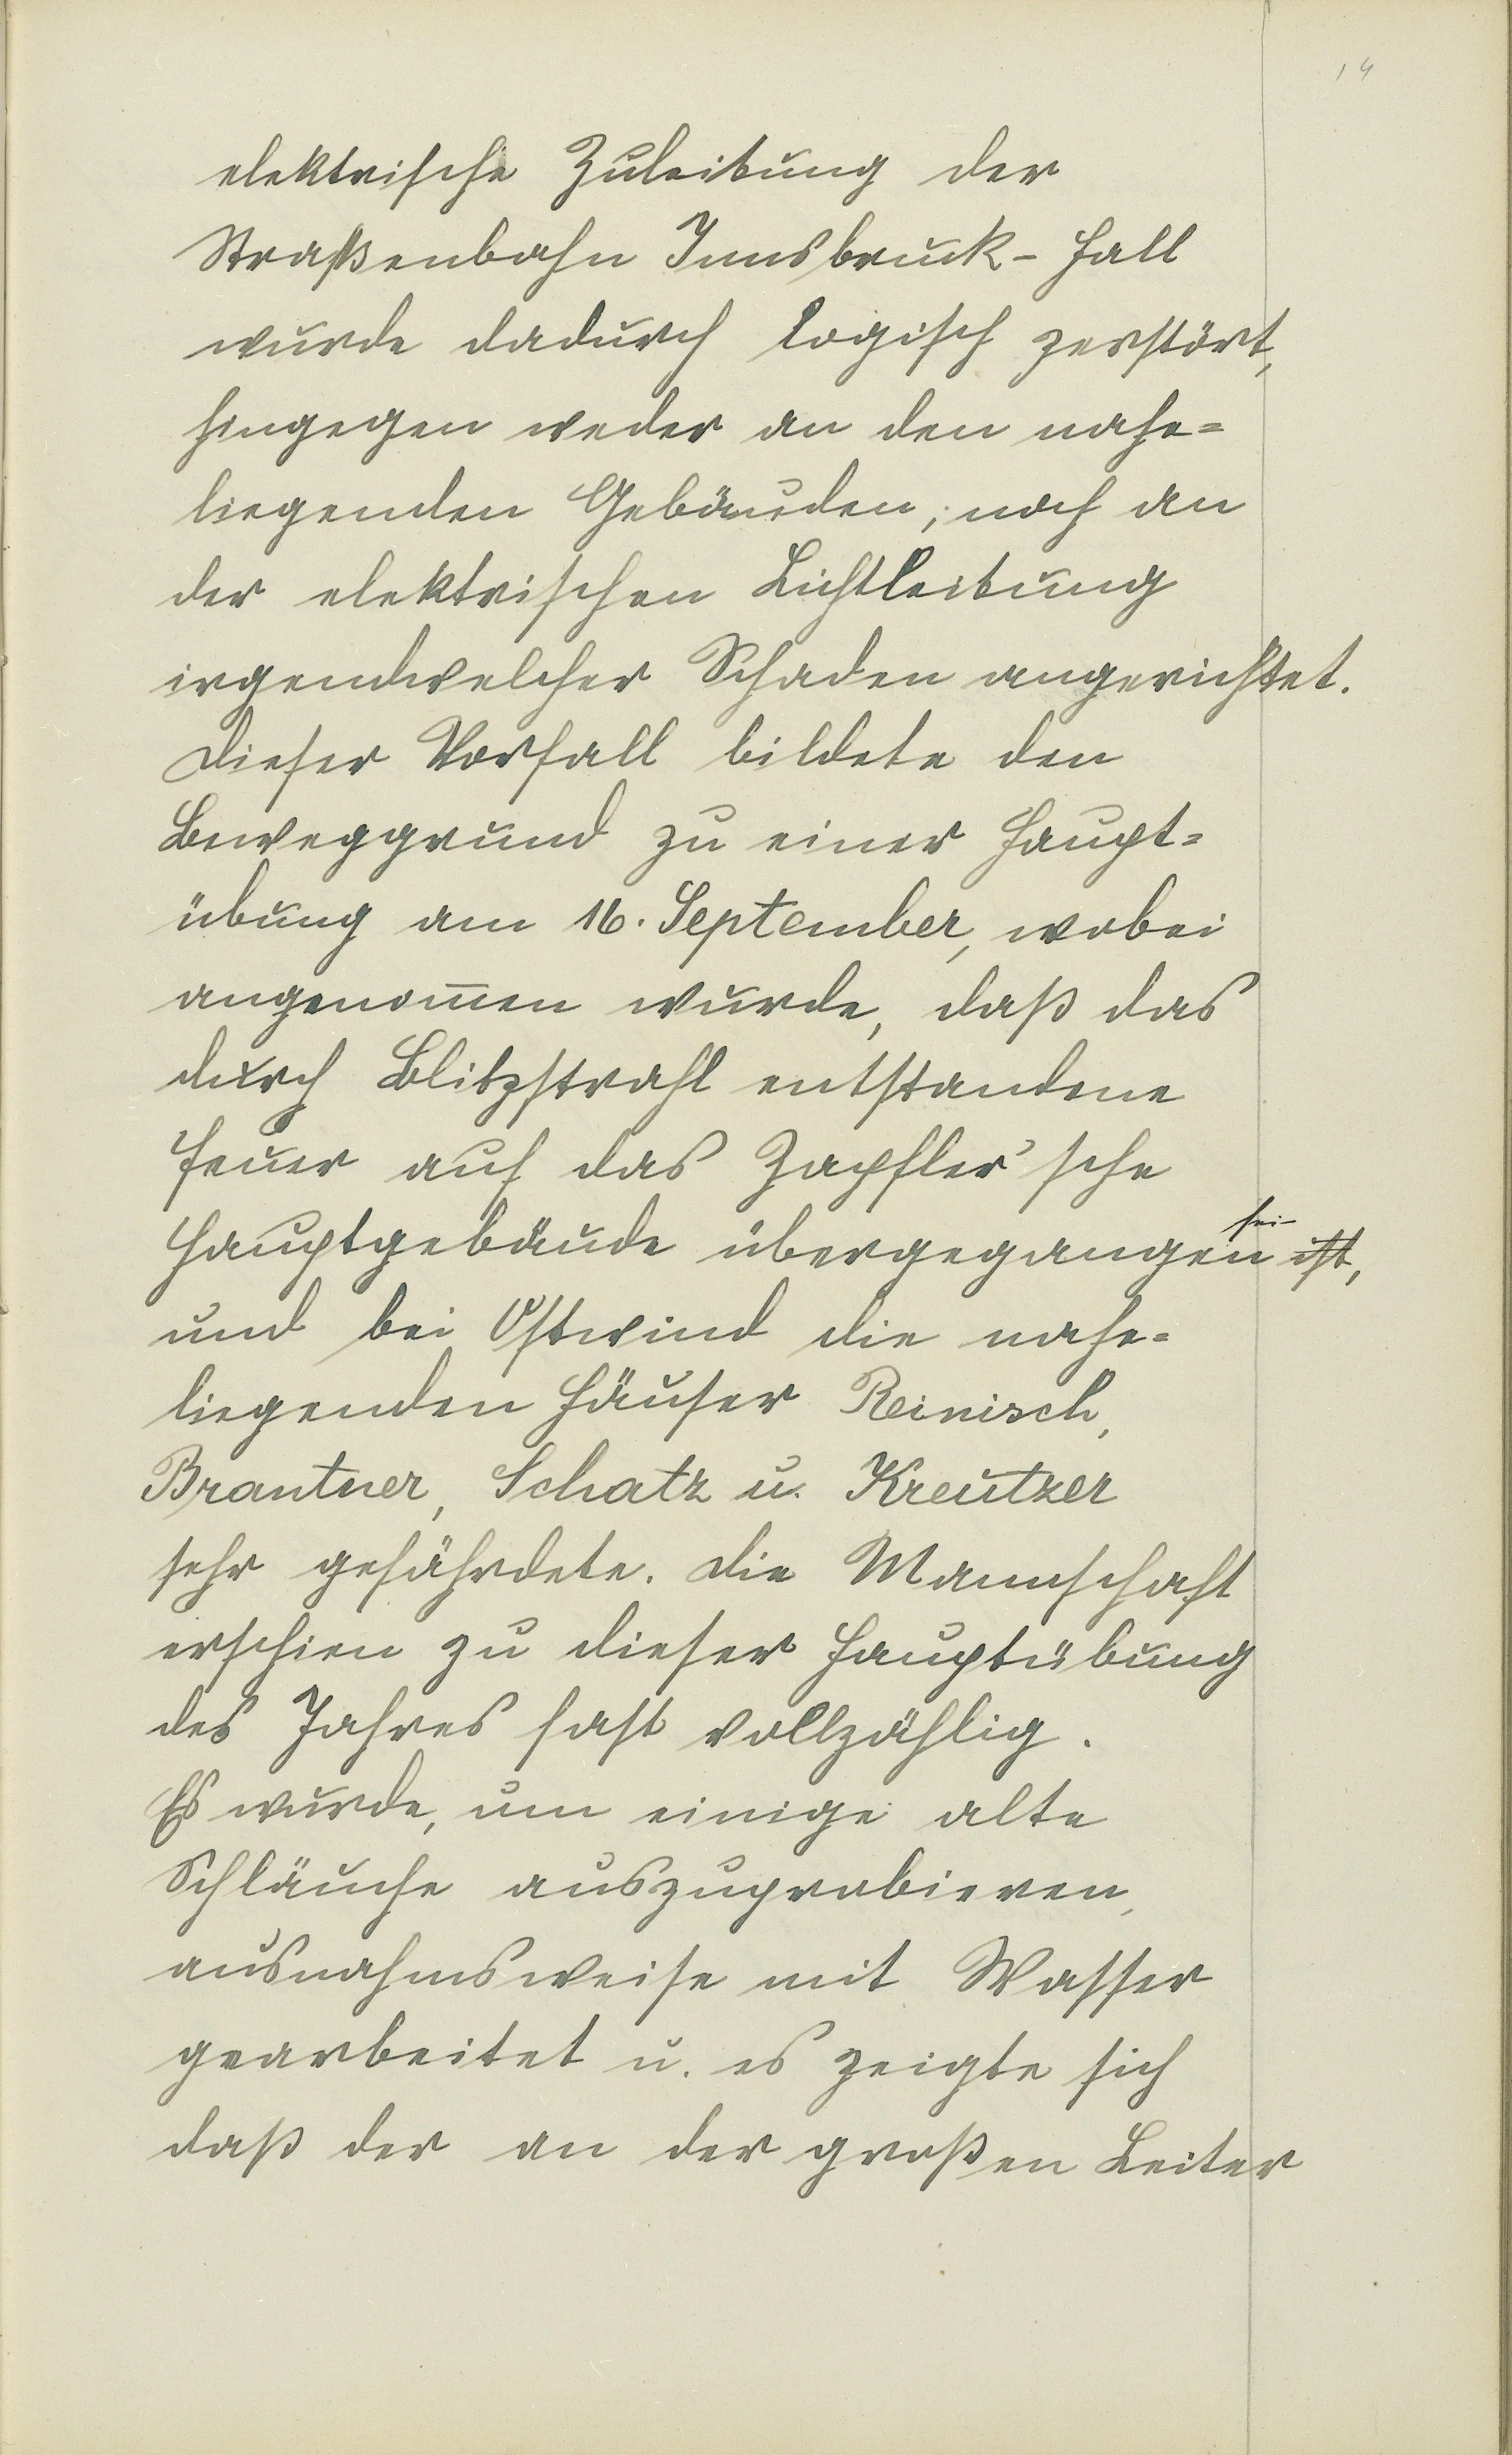 14
elektrische Zuleitung der
Straßenbahn Innsbruck-Hall
wurde dadurch logisch zerstört,
hingegen weder an den nahe=
liegenden Gebäuden, noch an
der elektrischen Lichtleitung
irgendwelcher Schaden angerichtet.
Dieser Vorfall bildete den
Beweggrund zu einer Haupt=
übung am 16. September, wobei
angenom̅en wurde, daß das
durch Blitzstrahl entstandene
Feuer auf das Zapfler'sche
Hauptgebäude übergegangen sei ist,
und bei Ostwind die nahe=
liegenden Häuser Reinisch,
Brantner, Schatz u. Kreutzer
sehr gefährdete. Die Mannschaft
erschien zu dieser Hauptübung
des Jahres fast vollzählig.
Es wurde, um einige alte
Schläuche auszuprobieren,
ausnahmsweise mit Wasser
gearbeitet u. es zeigte sich
daß der an der großen Leiter